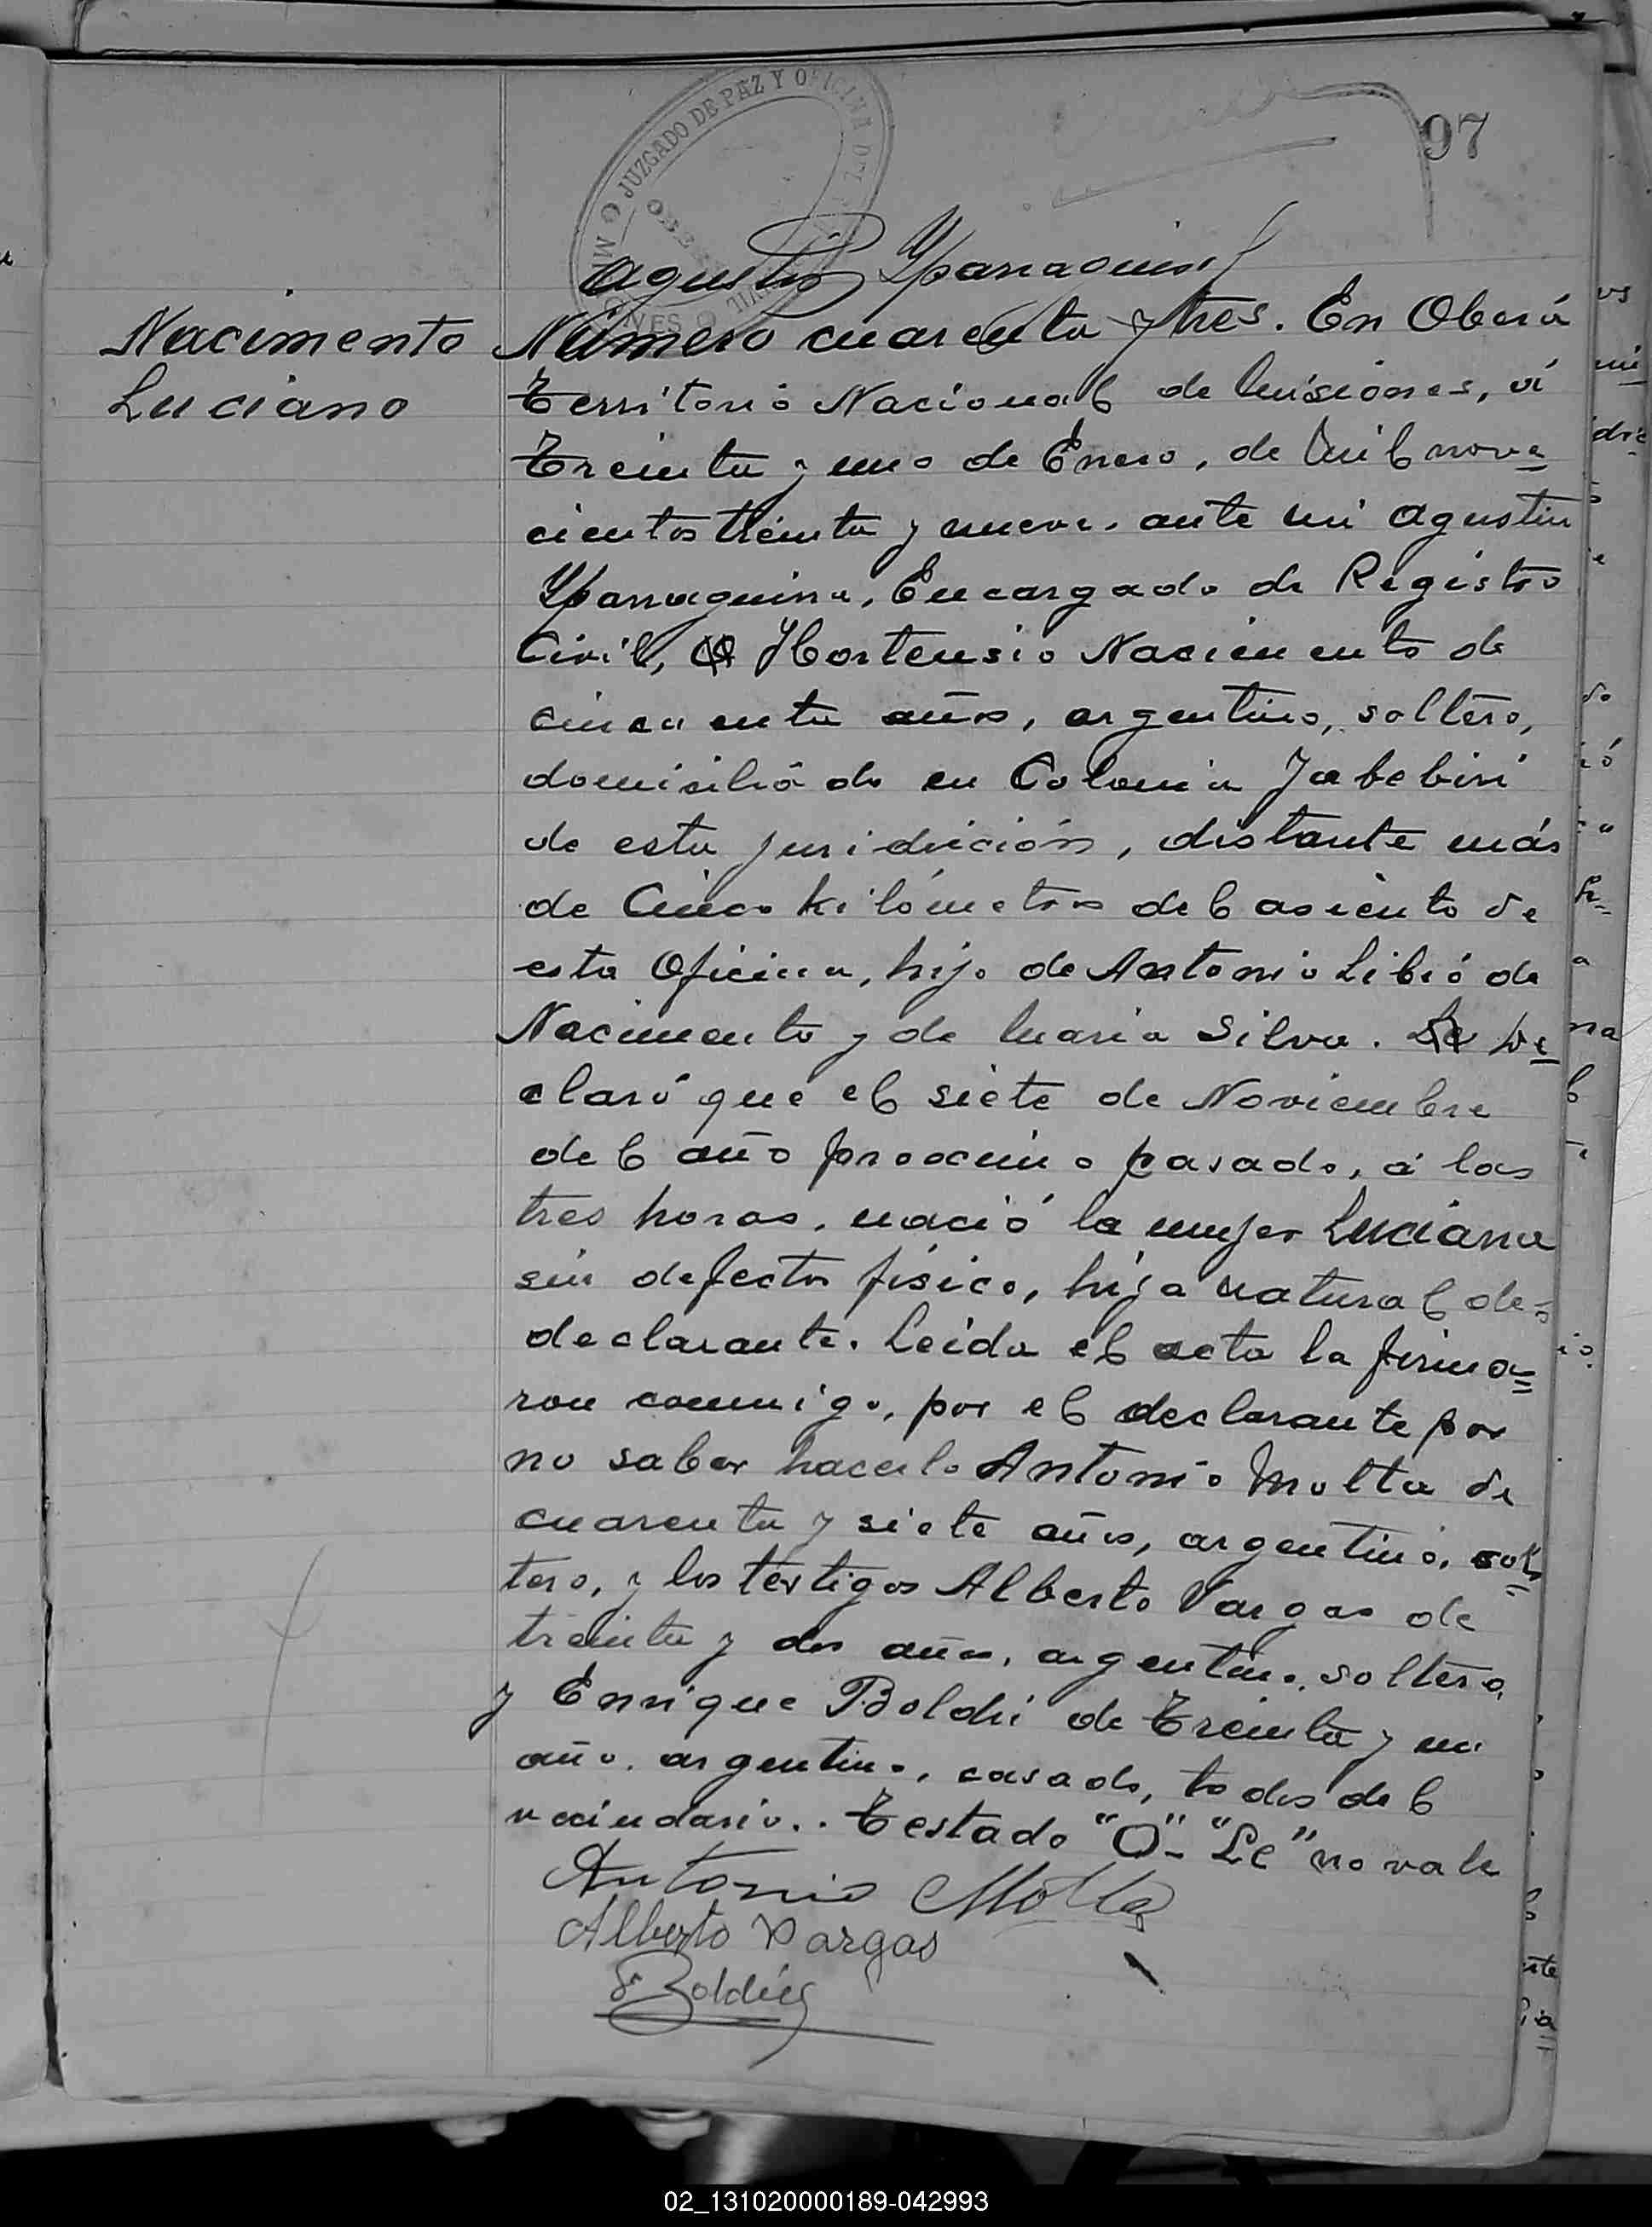 97
JUZGADO DE PAZ Y OFICINA DEL
Agustin Yparraguirre
Nacimento
Luciano
Número cuarenta y tres. En Oberá
Territorio Nacional de Misiones, á
Treinta y uno de Enero, de Mil nove=
cientos treinta y nueve. ante mi Agustin
Yparraguirre, Encargado de Registro
Civil, O Hortensio Nacimento de
cincuenta años, argentino, soltero,
domisiliádo en Colonia Yabebiri
de esta juridición, distante más
de Cinco kilómetros del asiento de
esta Oficina, hijo de Antonio Libió de
Nacimento y de Maria Silva. Le De=
claró que el siete de Noviembre
del año procximo pasado, á las
tres horas, nació la mujer Luciana
sin defecto fisico, hija natural de=
declarante. Leida el acta la firma=
ron conmigo, por el declarante por
no saber hacerlo Antonio Motta de
cuarenta y siete años, argentino, sol=
tero, y los testigos Alberto Vargas de
treinta y dos años, argentino, soltero,
y Enrique Boldú de Treinta y un
año, argentino, casado, todos del
vecindario.. Testado "O"- "Le" no vale
Antonio Motta
Alberto Vargas
E Boldú
02_131020000189-042993